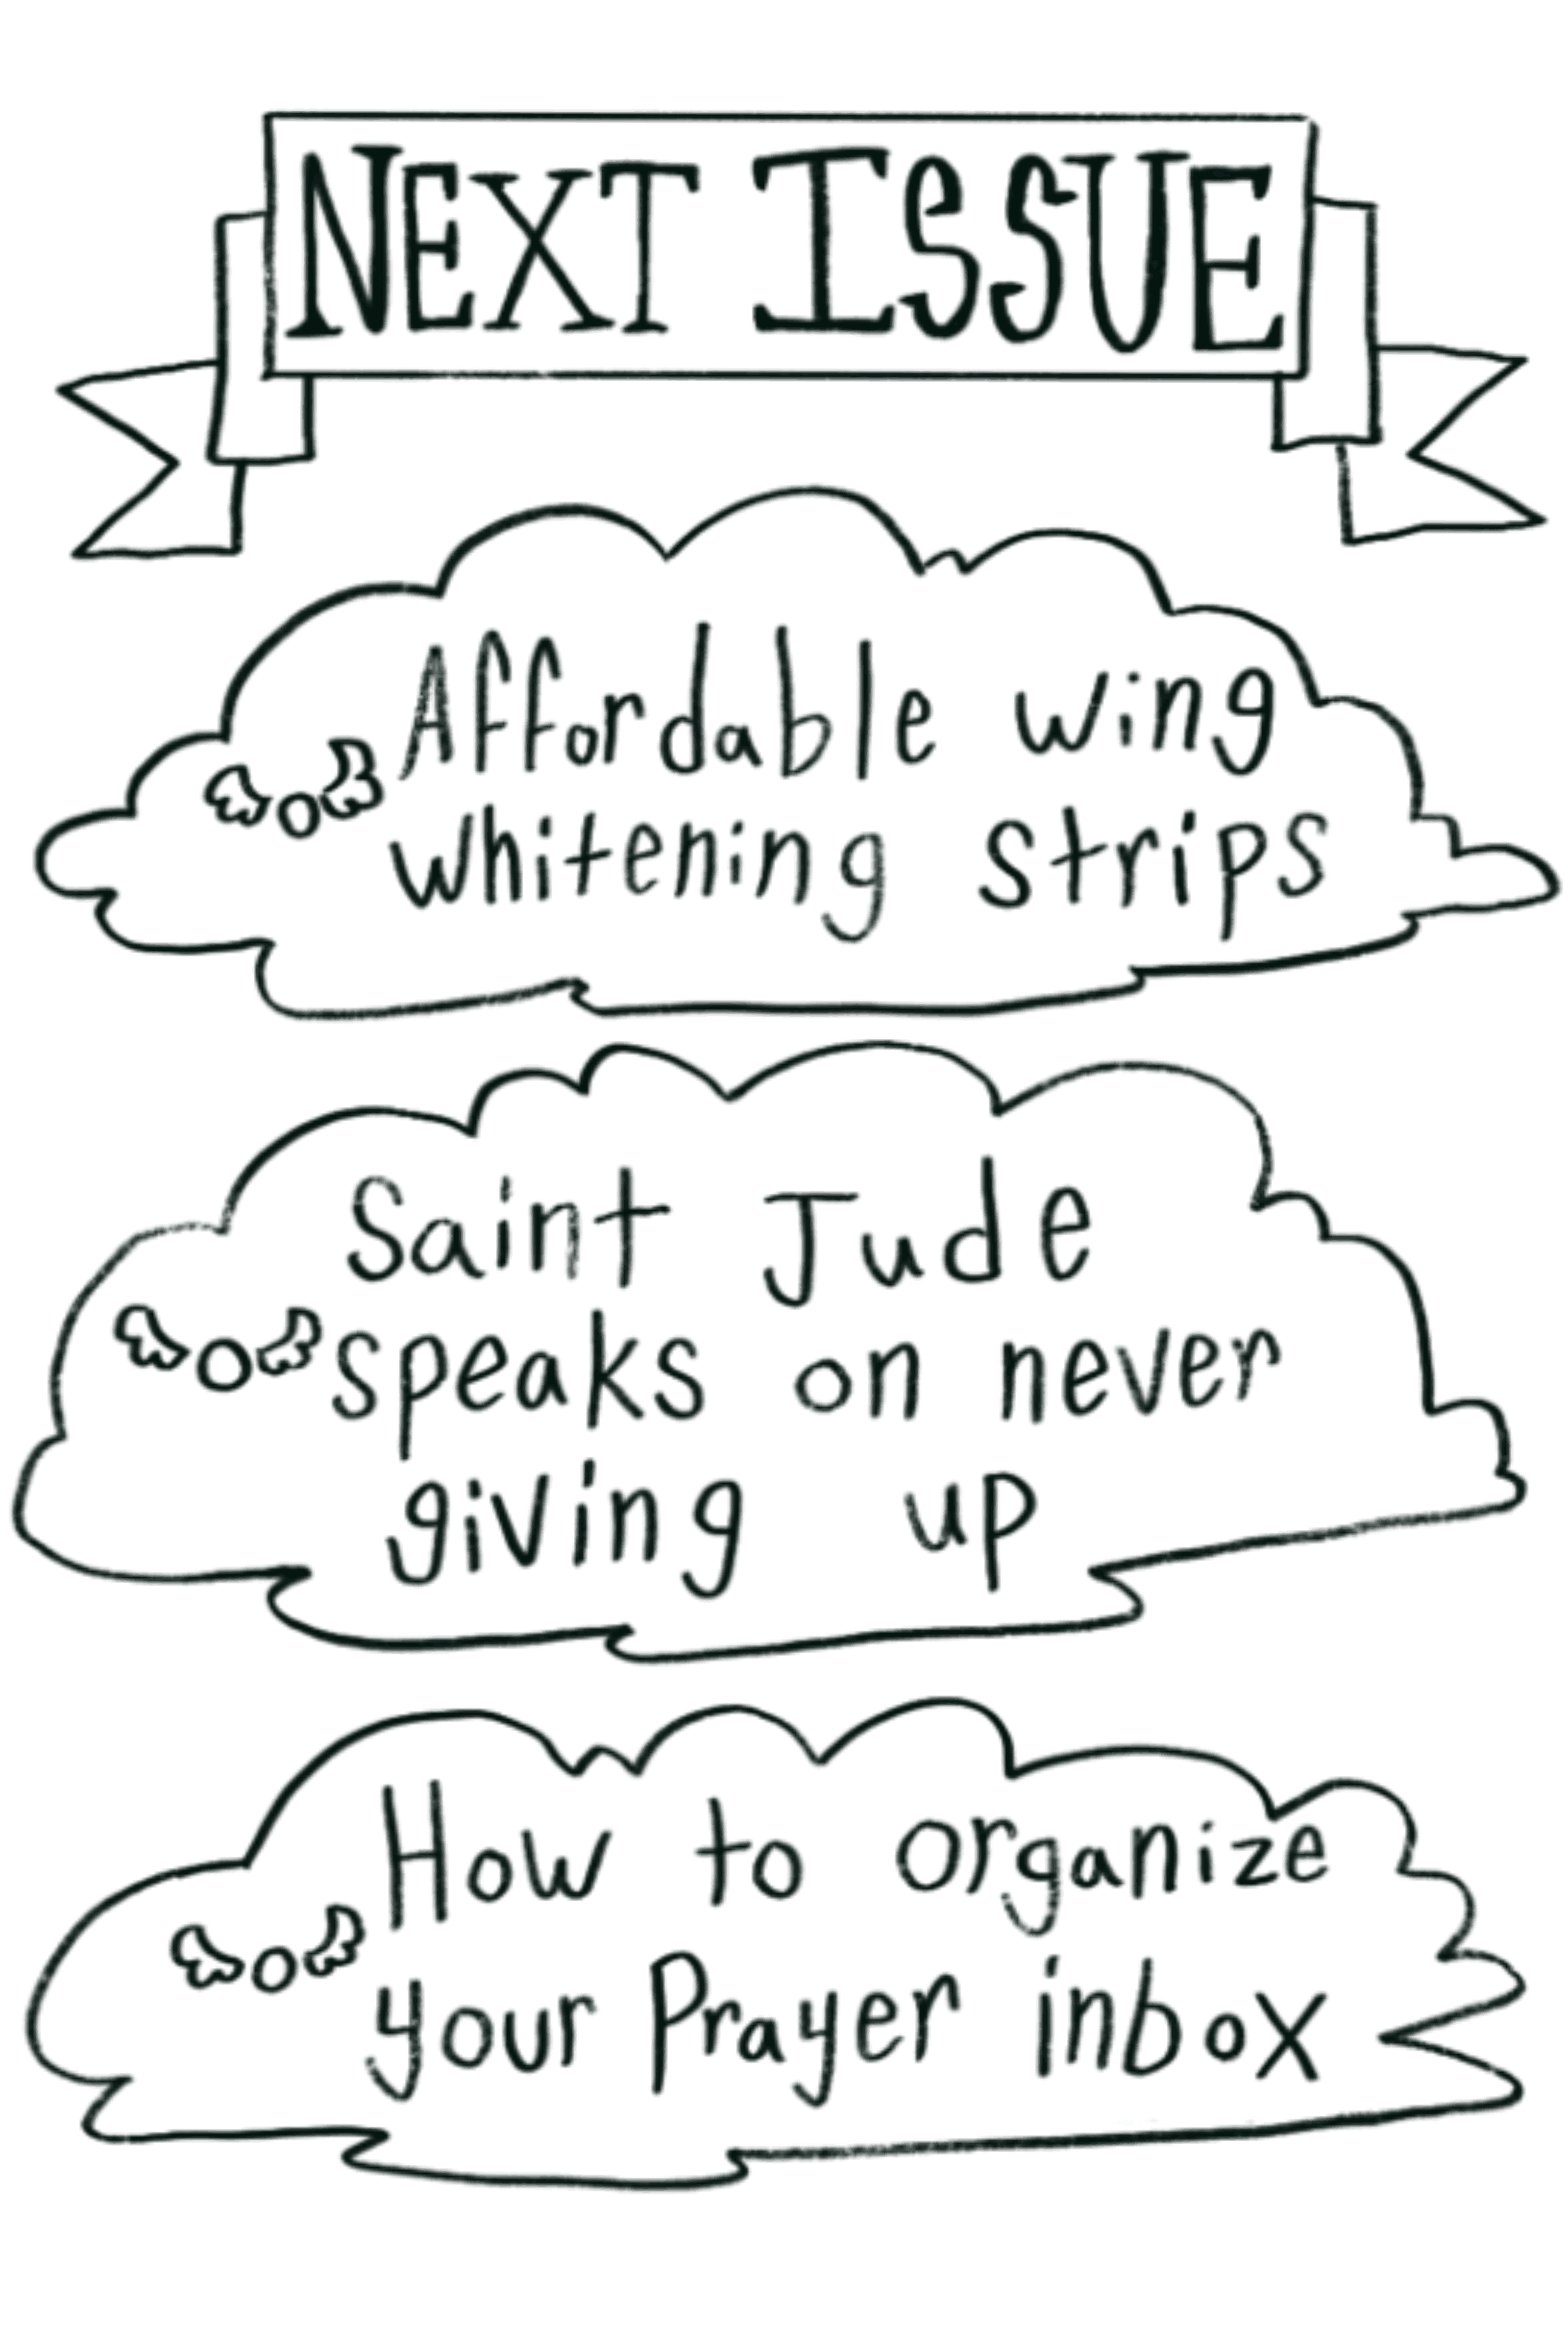 NEXT ISSUE
Affordable wing
whitening strips
Saint Jude
speaks on never
giving up
How to organize
your Prayer inbox